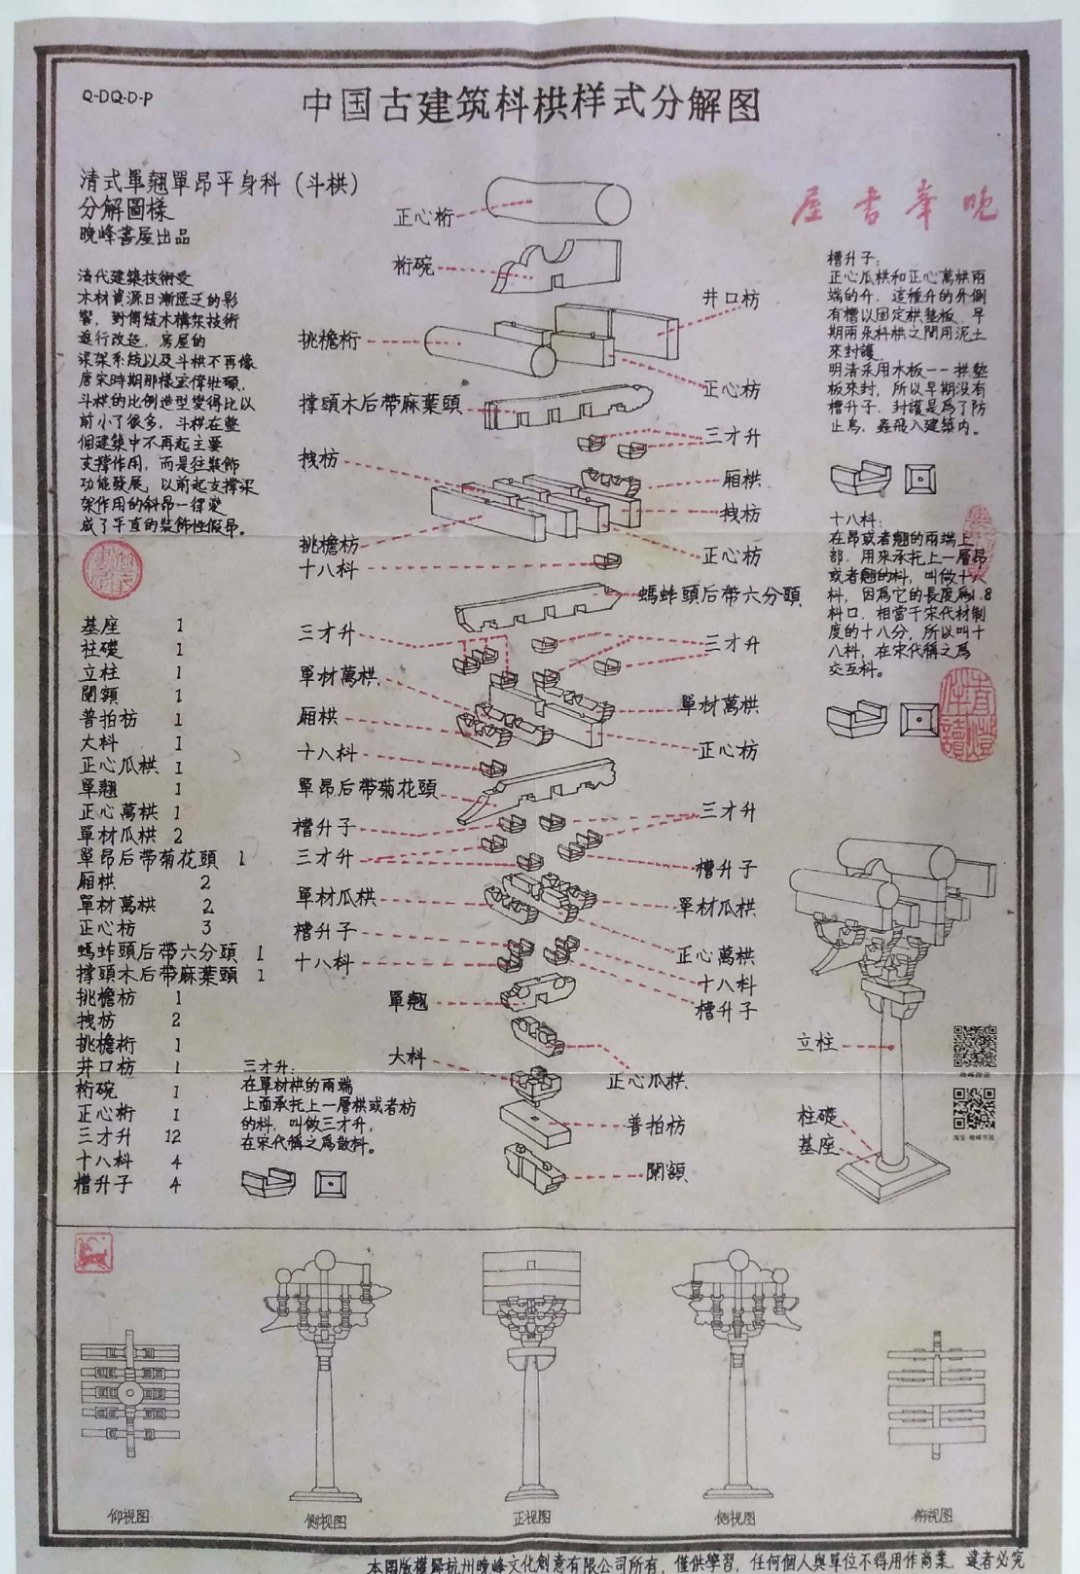 Q-DQ-D-P
中国古建筑科栱样式分解图
清式單翹單昂平身科（斗栱）
分解圖樣
晚峰書屋出品
晚峯書屋
清代建築技術受
木材資源日漸匱乏的影
響，對傳統木構架技術
進行改造，房屋的
梁架系統以及斗栱不再像
唐宋時期那樣宏偉壯碩，
斗栱的比例造型變得比以
前小了很多，斗栱在整
個建築中不再起主要
支撐作用，而是往裝飾
功能發展，以前起支撐梁
架作用的斜昂一律變
成了平直的裝飾性假昂。
正心桁
桁碗
井口枋
挑檐桁
正心枋
撑頭木后帶麻葉頭
三才升
拽枋
厢栱
拽枋
挑檐枋
正心枋
十八科
螞蚱頭后帶六分頭
三才升
三才升
單材萬栱
單材萬栱
厢栱
正心枋
十八科
單昂后带菊花頭
三才升
槽升子
三才升
槽升子
單材瓜栱
單材瓜栱
槽升子
正心萬栱
十八科
十八科
槽升子
單翹
大科
正心瓜栱
普拍枋
闌額
槽升子：
正心瓜栱和正心萬栱兩
端的升，這種升的外側
有槽以固定栱墊板，早
期兩朵科栱之間用泥土
來封護
明清采用木板——栱墊
板來封，所以早期没有
槽升子，封護是爲了防
止鳥，蟲飛入建築内。
十八科：
在昂或者翹的兩端上
部，用來承托上一層昂
或者翹的科，叫做十八
科，因爲它的長度爲1.8
科口，相當于宋代材制
度的十八分，所以叫十
八科，在宋代稱之爲
交互科。
基座 1
柱礎 1
立柱 1
闌額 1
普拍枋 1
大科 1
正心瓜栱 1
單翹 1
正心萬栱 1
單材瓜栱 2
單昂后带菊花頭 1
厢栱 2
單材萬栱 2
正心枋 3
螞蚱頭后帶六分頭 1
撑頭木后帶麻葉頭 1
挑檐枋 1
拽枋 2
挑檐桁 1
井口枋 1
桁碗 1
正心桁 1
三才升 12
十八科 4
槽升子 4
三才升：
在單材栱的兩端
上面承托上一層栱或者枋
的科，叫做三才升，
在宋代稱之爲散科。
立柱
柱礎
基座
仰视图
侧视图
正视图
侧视图
俯视图
本圖版權歸杭州晚峰文化創意有限公司所有，僅供學習，任何個人與單位不得用作商業，違者必究